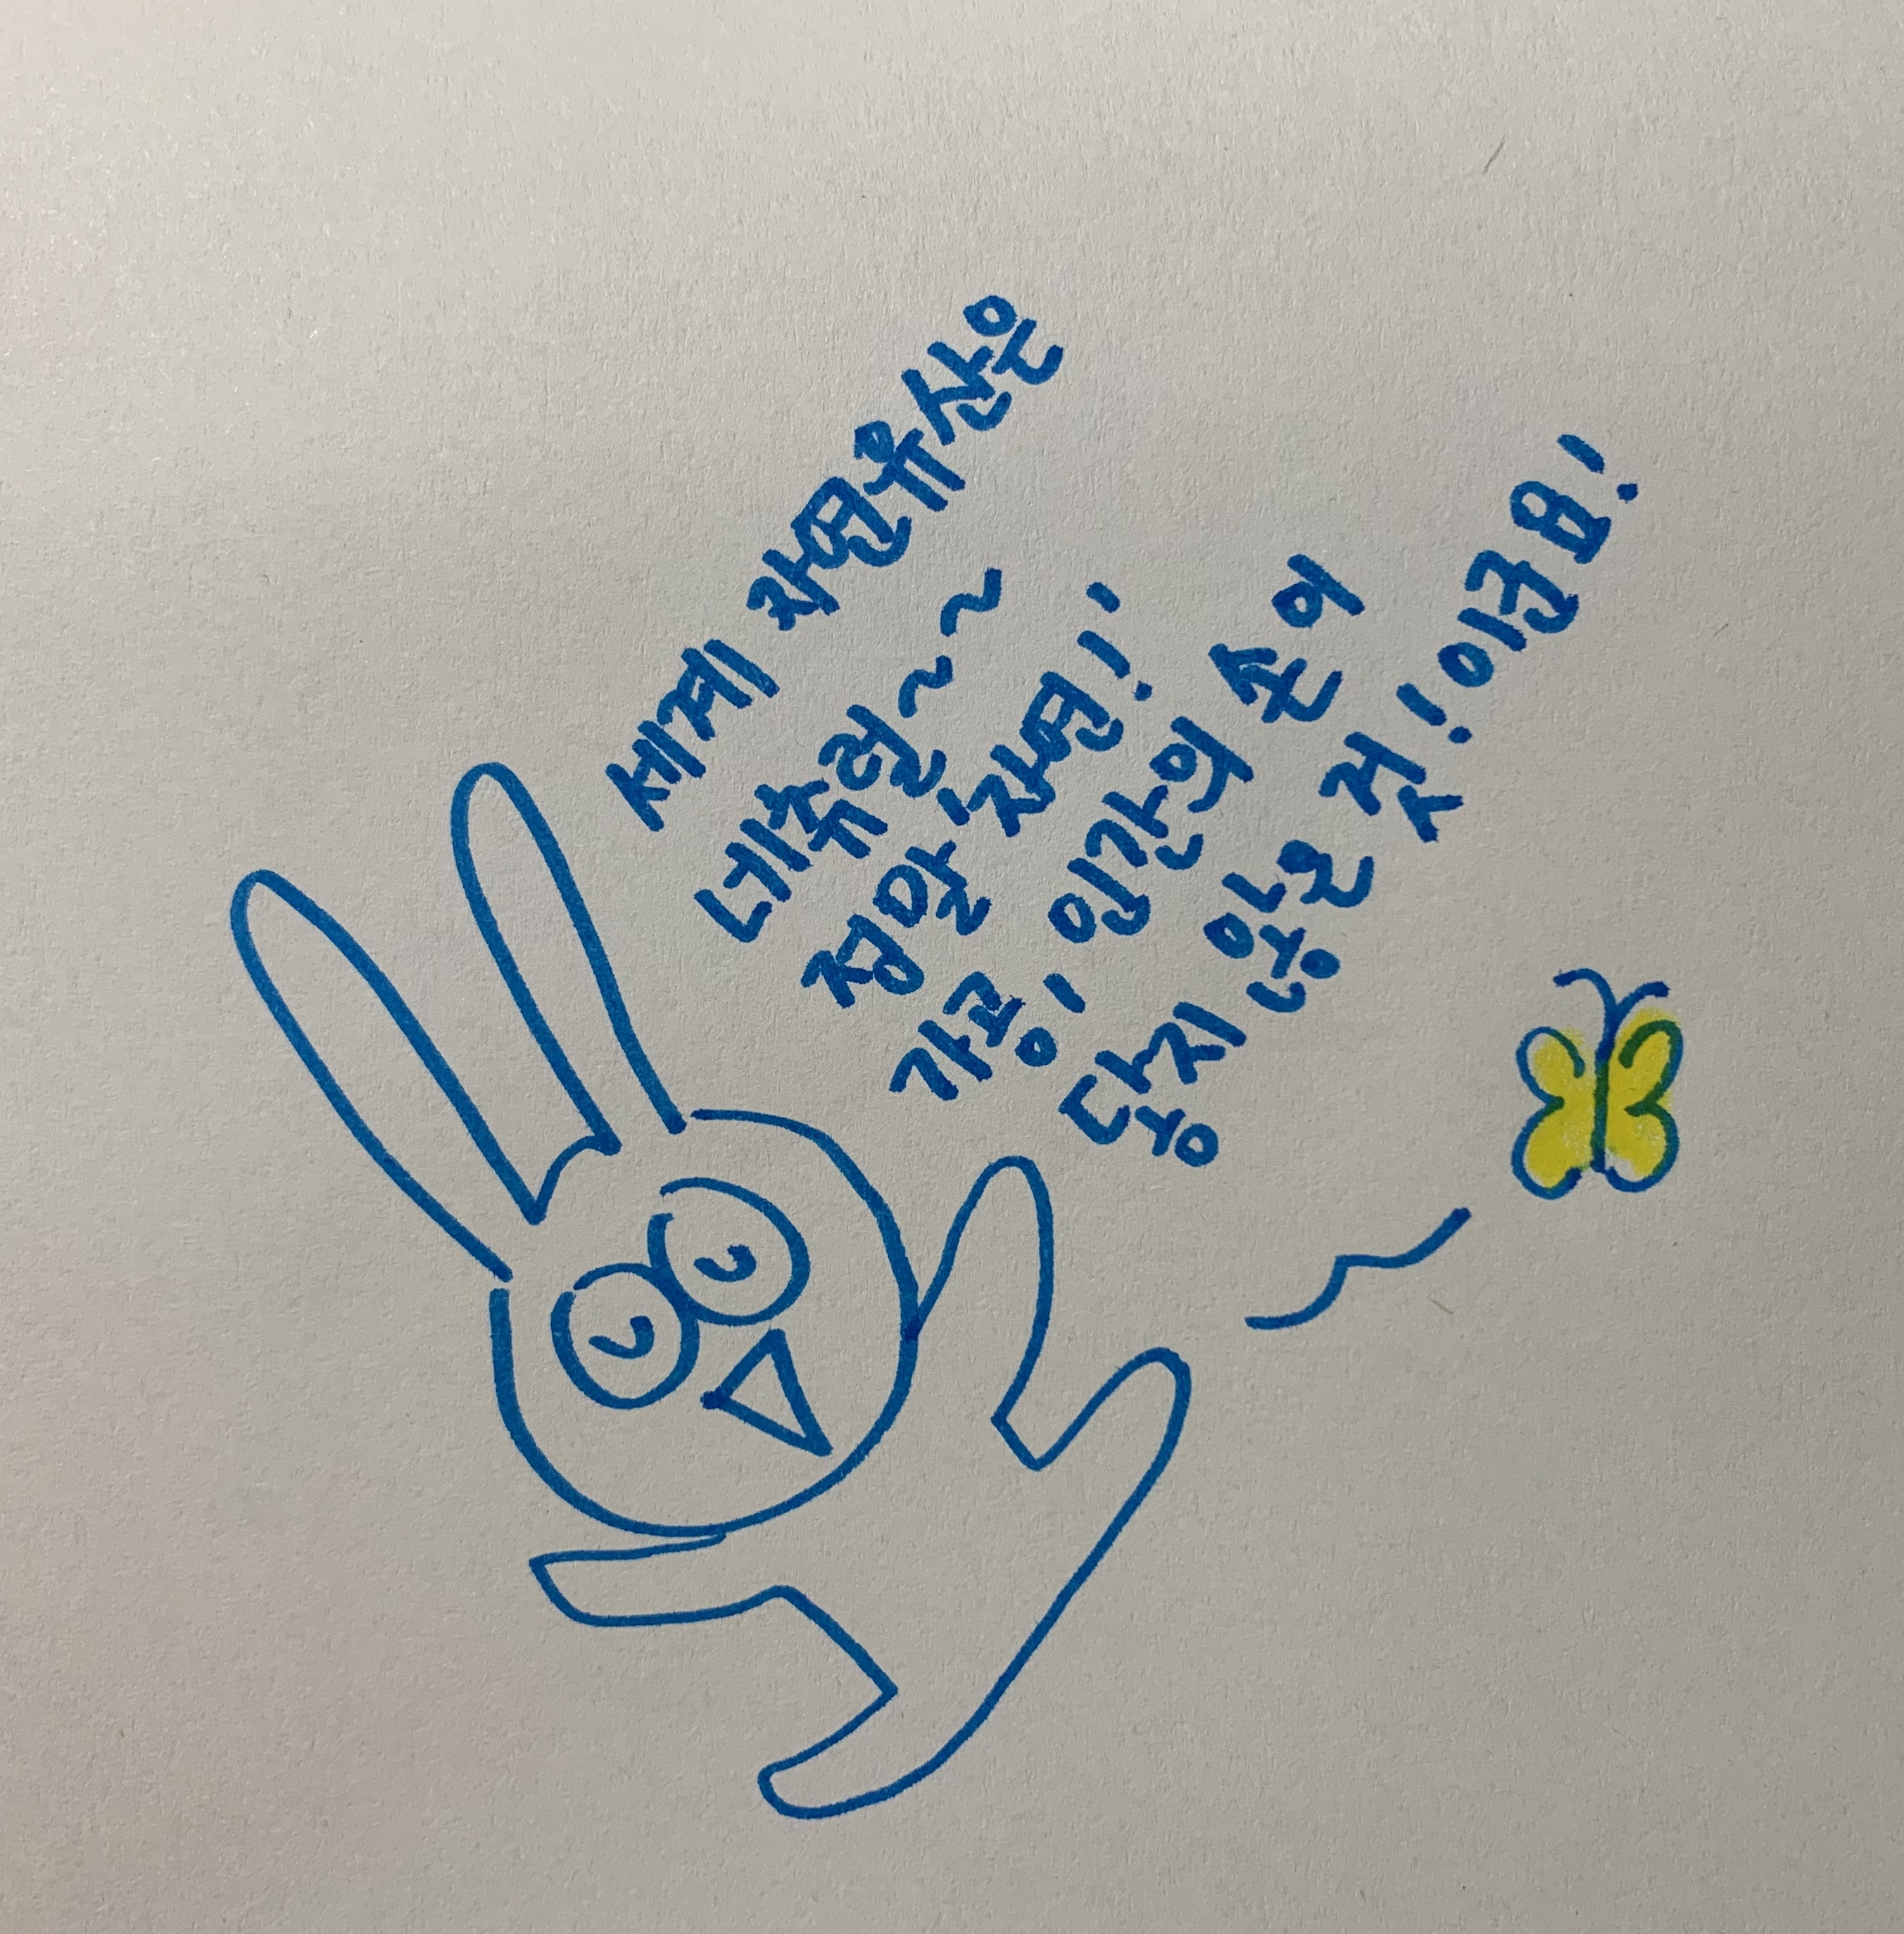 세계 자연유산은
네츄럴~~
정말 '자연!'
가공' 인간의 손이
닿지 않은 것! 이군요!